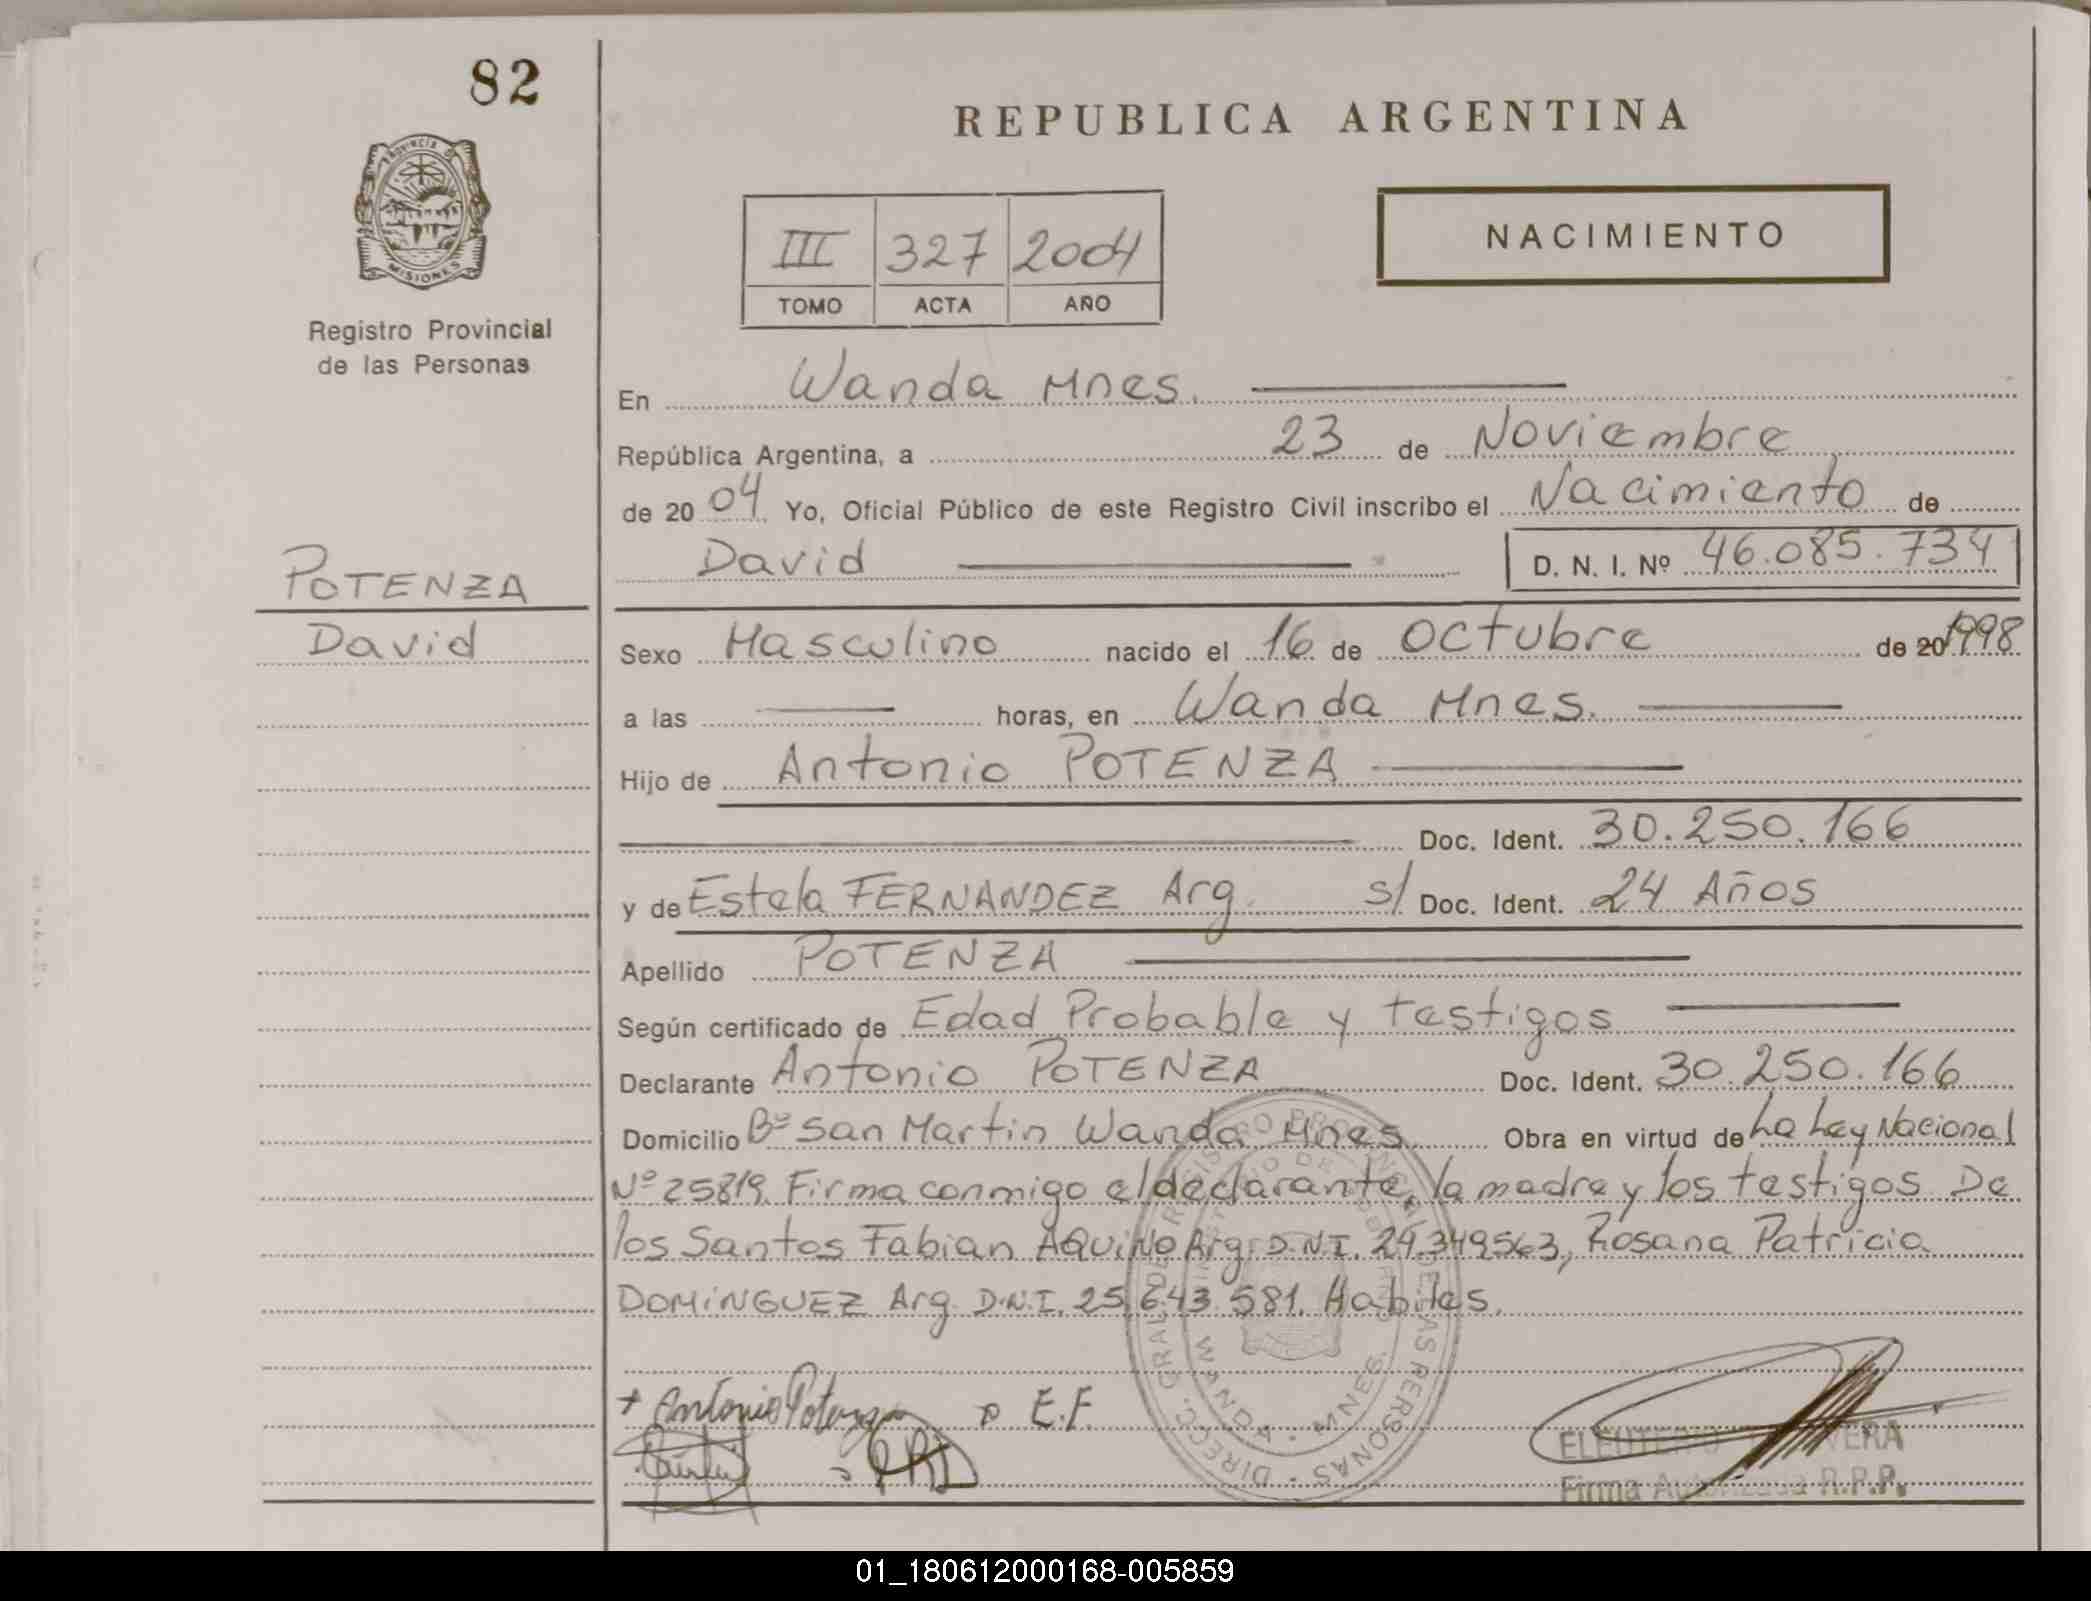 82
REPUBLICA ARGENTINA
PROVINCIA DE
MISIONES
Registro Provincial
de las Personas
III 327 2004
TOMO ACTA AÑO
NACIMIENTO
En Wanda Mnes.
República Argentina, a 23 de Noviembre
de 20 04 Yo, Oficial Público de este Registro Civil inscribo el Nacimiento de
David D. N. I. Nº 46.085.734
POTENZA
David
Sexo Masculino nacido el 16 de Octubre de 20 1998
a las horas, en Wanda Mnes.
Hijo de Antonio POTENZA
Doc. Ident. 30.250.166
y de Estela FERNANDEZ Arg. s/ Doc. Ident. 24 Años
Apellido POTENZA
Según certificado de Edad Probable y testigos
Declarante Antonio POTENZA Doc. Ident. 30.250.166
Domicilio Bº San Martin Wanda Mnes Obra en virtud de La Ley Nacional
Nº 25819. Firma conmigo el declarante, la madre y los testigos De
los Santos Fabian AQUINO Arg. D.N.I. 29.349563, Rosana Patricia
DOMINGUEZ Arg. D.N.I. 25.643.581. Habiles.
+ Antonio Potenza E.F.
DIREC. GRAL DE REGISTRO PROVINCIAL DE LAS PERSONAS
WANDA - MNES.
Firma Autorizada R.P.P.
01_180612000168-005859